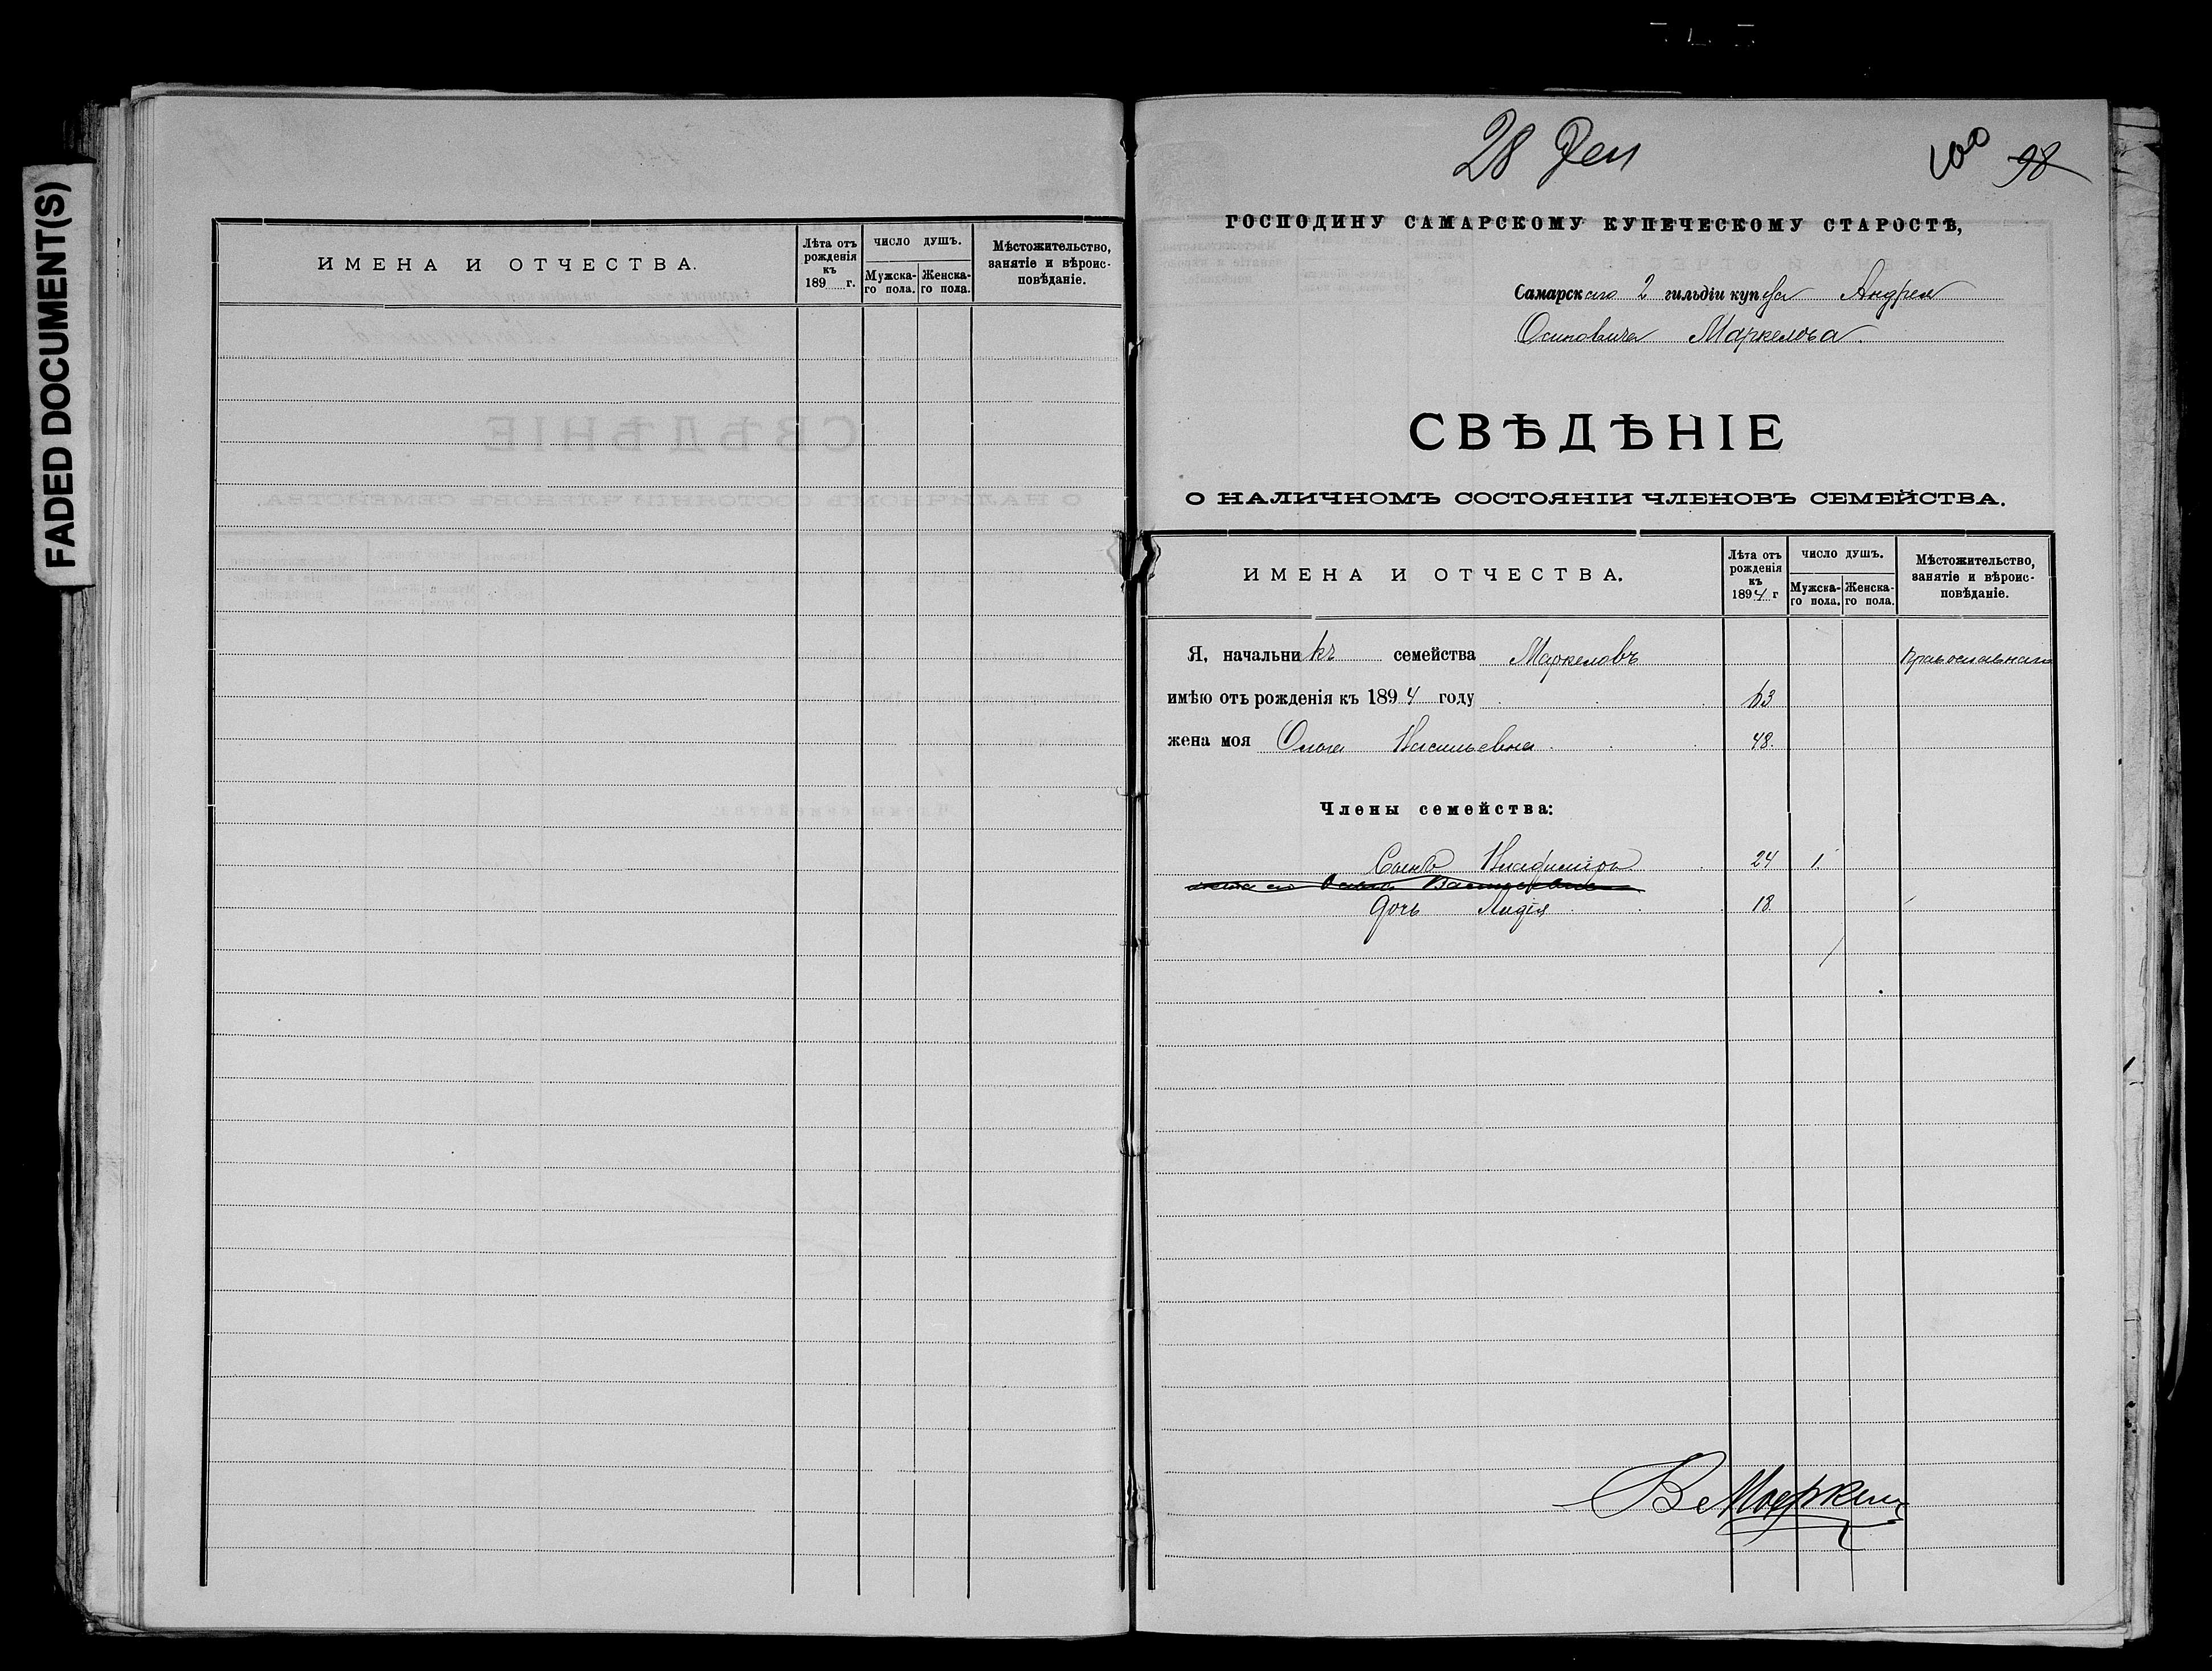 FADED DOCUMENT(S)
ИМЕНА И ОТЧЕСТВА.
Лѣта отъ рожденія къ 189 г.
ЧИСЛО ДУШЪ.
Мужска-го пола.
Женска-го пола.
Мѣстожительство, занятіе и вѣроис-повѣданіе.
28 Ден
100 98
ГОСПОДИНУ САМАРСКОМУ КУПЕЧЕСКОМУ СТАРОСТѢ,
Самарскаго 2 гильдіи купца Андрея
Осиповича Маркелова.
СВѢДѢНІЕ
О НАЛИЧНОМЪ СОСТОЯНІИ ЧЛЕНОВЪ СЕМЕЙСТВА.
ИМЕНА И ОТЧЕСТВА.
Лѣта отъ рожденія къ 1894 г
ЧИСЛО ДУШЪ.
Мужска-го пола.
Женска-го пола.
Мѣстожительство, занятіе и вѣроис-повѣданіе.
Я, начальникъ семейства Маркеловъ Православнаго
имѣю отъ рожденія къ 1894 году 63
жена моя Ольга Васильевна 48.
Члены семейства:
Сынъ Владиміръ 24 1
жена его Ольга Васильевна
Дочь Лидія 18.